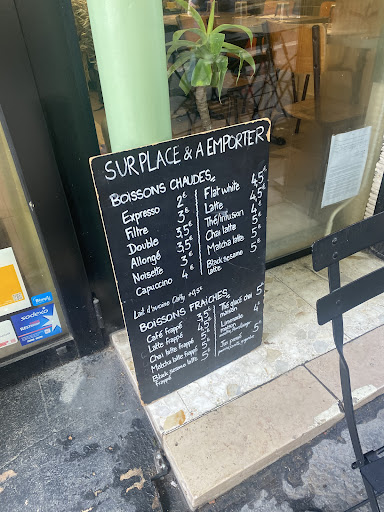 SUR PLACE & A EMPORTER
BOISSONS CHAUDES
Expresso 2€
Filtre 3€
Double 3,5€
Allongé 3€
Noisette 3€
Capuccino 4€
Flat white 4,5€
Latte 4,5€
Thé/infusion 5€
Chai latte 5€
Matcha latte 5€
Black sesame latte 5€
Lait d'avoine Oatly +0,5€
BOISSONS FRAICHES
Café frappé 3,5€
Latte frappé
Chai latte frappé
Matcha latte frappé
Black sesame latte frappé 5€
Thé glacé chai maison
Limonade maison
Jus pomme
sodexo